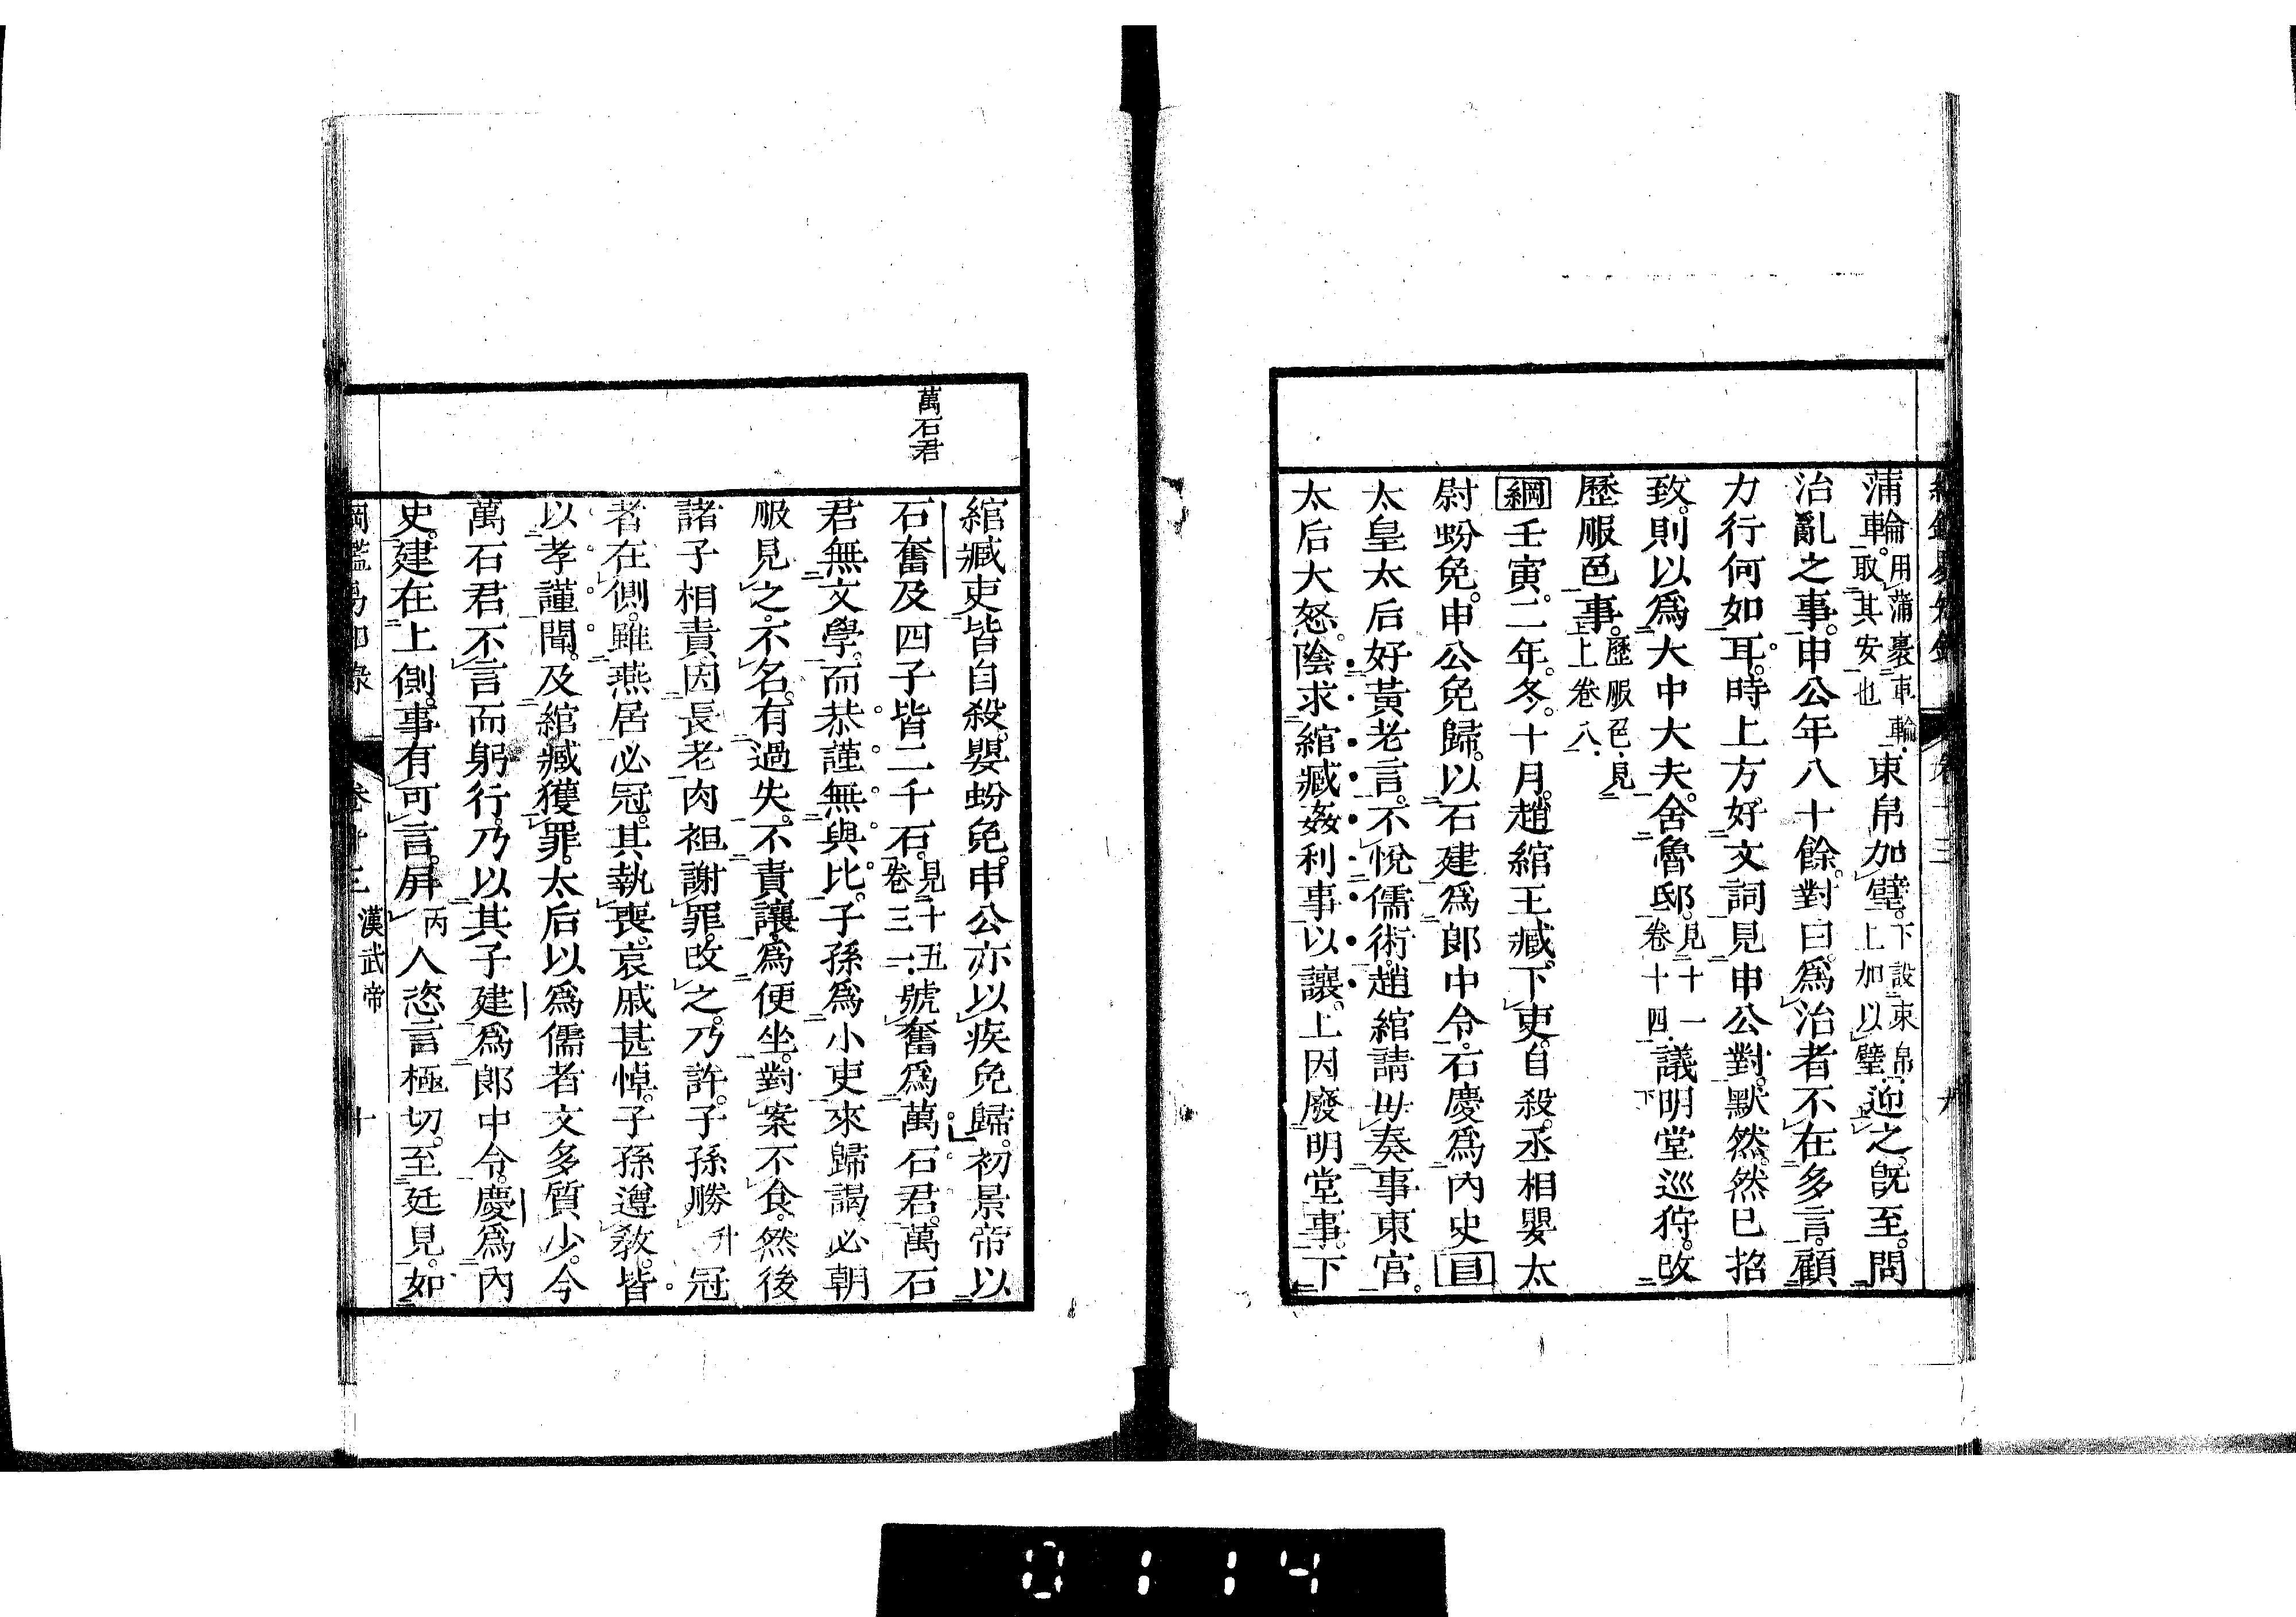 蒲輪車。用蒲裹車輪、取其安也東帛加璧。下設束帛、上加以璧迎之。既至。問
治亂之事。申公年八十餘。對曰。爲治者不在多言。顧
力行何如耳。時上方好文詞見申公對。默然。然已招
致。則以爲大中大夫。舍魯邸。見十一卷十四議明堂巡狩。改
歷服色事。歷服色、見上卷八
綱壬寅。二年。冬。十月。趙綰王臧。下吏。自殺。丞相嬰太
尉蚡免。申公免歸。以石建爲郎中令。石慶爲內史目
太皇太后好黃老言。不悅儒術。趙綰請毋奏事東宮。
太后大怒。陰求綰臧姦利事以讓。上因廢明堂事。下
萬石君
綰臧吏皆自殺。嬰蚡免。申公亦以疾免歸。初景帝以
石奮及四子皆二千石。見十五卷三一號奮爲萬石君。萬石
君無文學。而恭謹無與比。子孫爲小吏來歸謁必朝
服見之。不名。有過失。不責讓。爲便坐。對案不食。然後
諸子相責因長老肉袒謝罪。改之。乃許。子孫勝升冠
者在側。雖燕居必冠。其執喪。哀戚甚悼。子孫遵教。皆
以孝謹聞。及綰臧獲罪。太后以爲儒者文多質少。今
萬石君不言而躬行。乃以其子建爲郎中令。慶爲內
史。建在上側。事有可言。屏丙人恣言極切。至廷見。如
漢武帝
十
0114